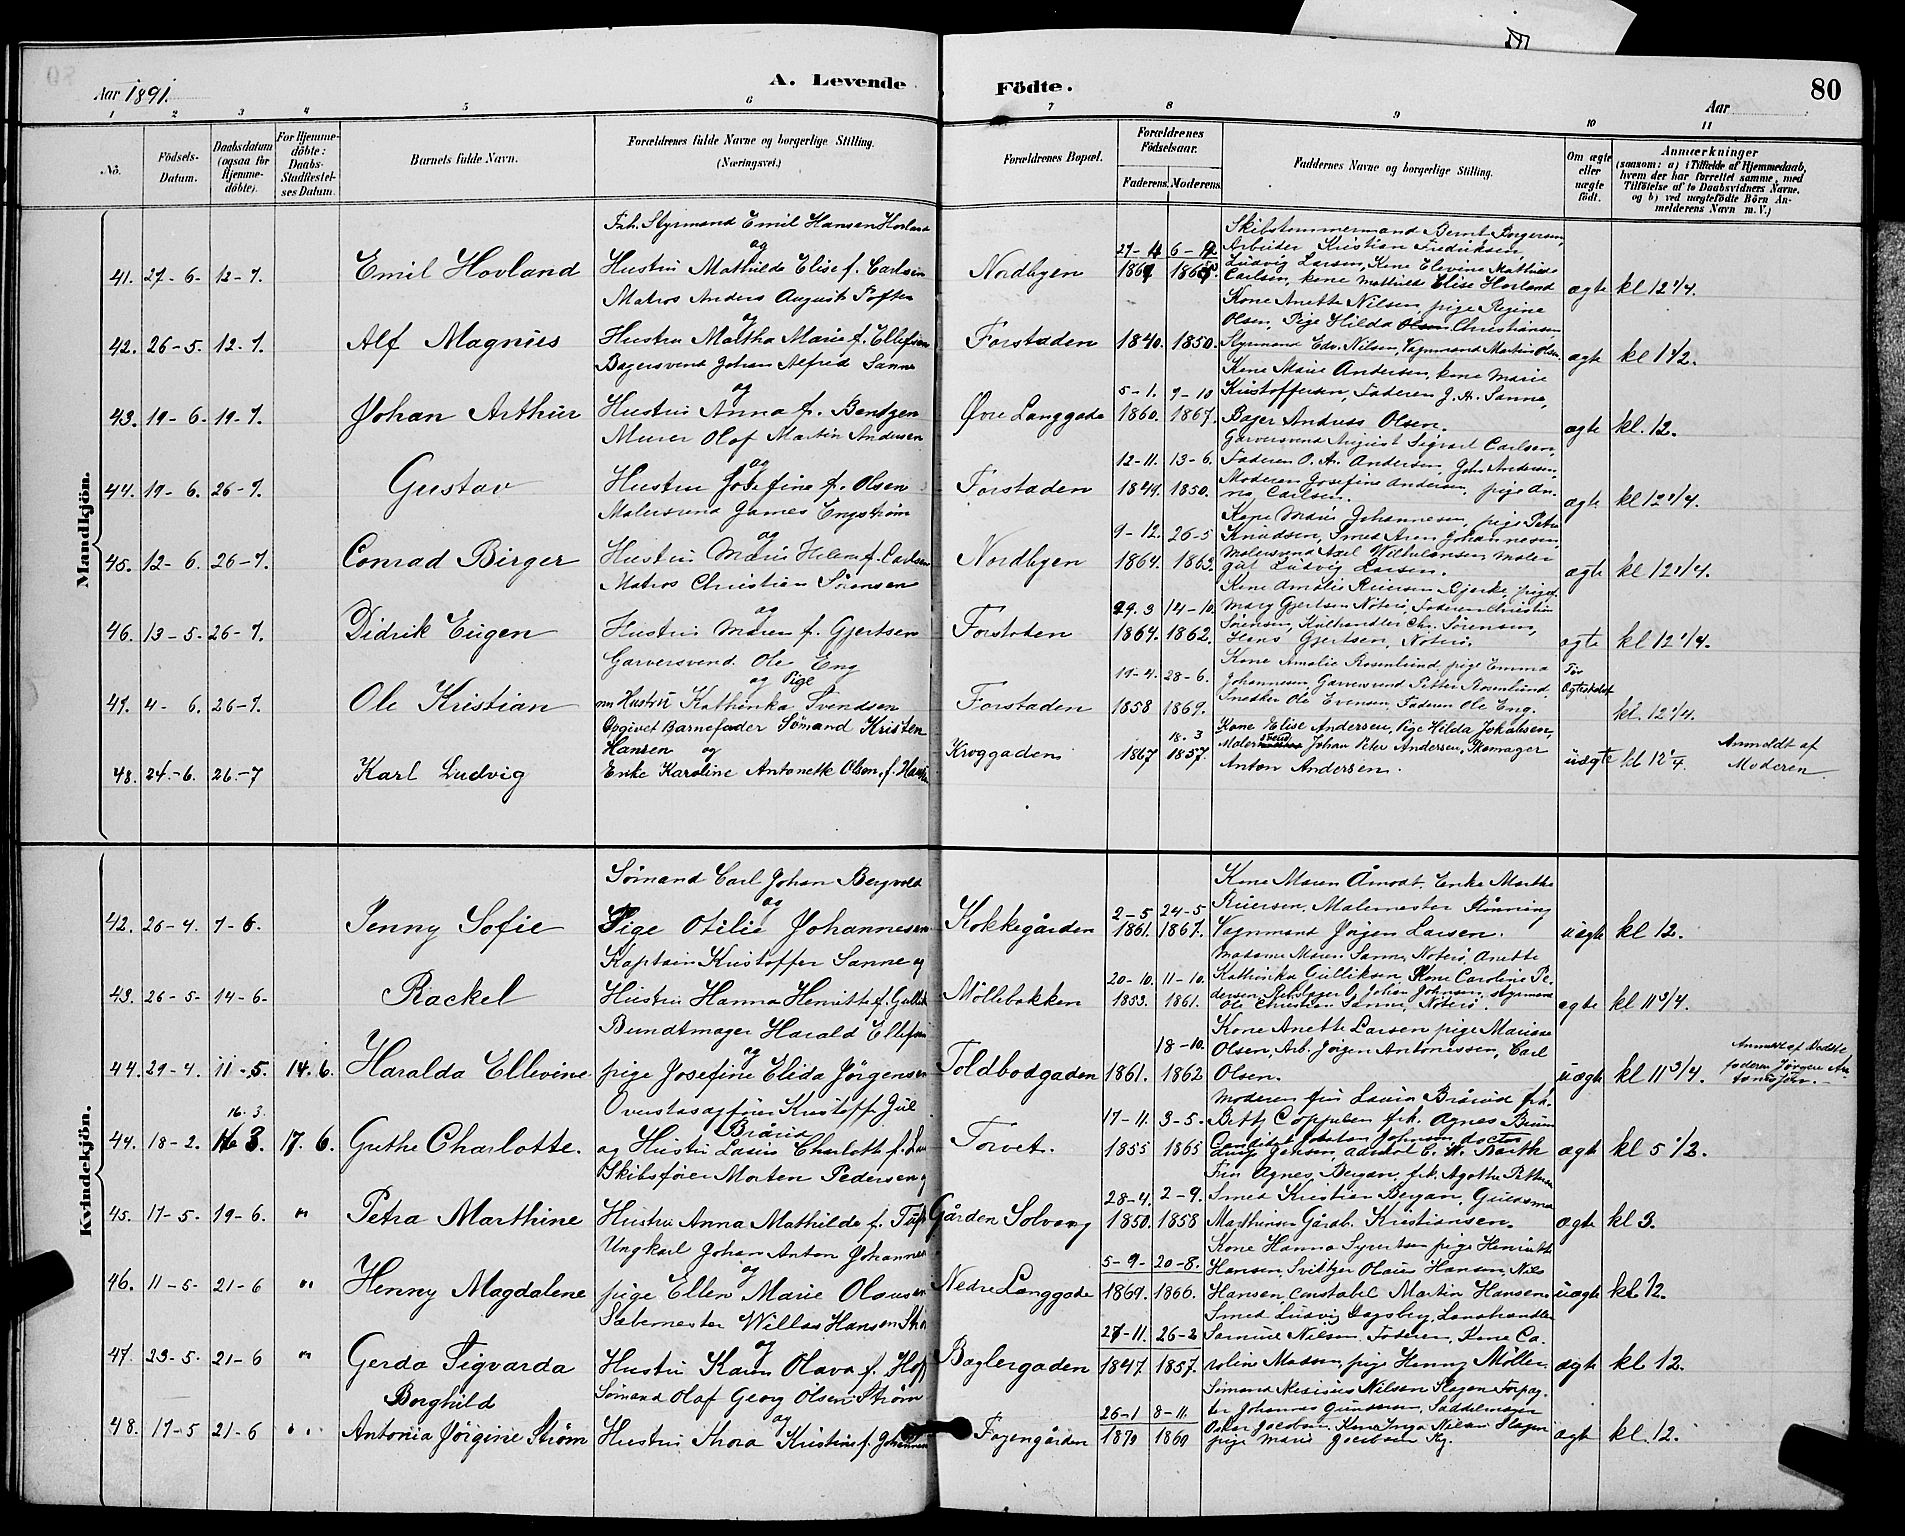 Aar 1891.
A. Levende Födte.
80
Aar
1 2 3 4 5 6 7 8 9 10 11
Nö.
Födsels-Datum.
Daabsdatum (ogsaa for Hjemme-döbte).
For Hjemme-döbte: Daabs-Stadfæstelses Datum.
Barnets fulde Navn.
Forældrenes fulde Navne og borgerlige Stilling. (Næringsvei.)
Forældrenes Bopæl.
Forældrenes Födselsaar.
Faderens. Moderens.
Faddernes Navne og borgerlige Stilling.
Om ægte eller uægte födt.
Anmærkninger
(saasom: a) i Tilfælde af Hjemmedaab, hvem der har forrettet samme, med Tilföielse af to Daabsvidners Navne, og b) ved uægtefödte Börn Anmelderens Navn m. V.)
Mandkjön.
Frh. Styrmand Emil Hansen Hovland
og
41. 27-6. 12-7. Emil Hovland Hustru Mathilde Elise f. Carlsen Nordbyen ægte kl 12 1/4.
Skibstømmermand Bernt Borgersen,
Arbeider Kristian Fredriksen,
Ludvig Larsen, Kone Elevine Mathilde
Carlsen, kone Mathilde Elise Hovland
Matros Anders August Tofter
og
42. 26-5. 12-7. Alf Magnus Hustru Martha Marie f. Ellefsen Forstaden 1840. 1850. ægte kl 1 1/2.
Kone Anette Nilsen pige Regine
Olsen, Pige Hilda Christiansen
Styrmand Edv. Nilsen, Vognmand Martin Olsen
Bagersvend Johan Alfred Sanne
og
43. 19-6. 19-7. Johan Arthur Hustru Anna f. Bentzen Øvre Langgade 5-1. 1860. 9-10 1867. ægte kl. 12.
Kone Marie Andersen, kone Marie
Kristoffersen, Faderen J. A. Sanne,
Bager Andreas Olsen.
Murer Olaf Martin Andersen
og
44. 19-6. 26-7. Gustav Hustru Josefine f. Olsen Forstaden 12-11. 1849. 13-6. 1850. ægte kl 12 1/4.
Garversvend August Sigvart Carlsen,
Faderen O. M. Andersen, Joh. Andersen,
Moderen Josefine Andersen, pige An-
na Carlsen.
Malersvend James Engstrøm
og
45. 12-6. 26-7. Conrad Birger Hustru Marie Helene f. Carlsen Nordbyen 9-12. 1864. 26-5 1862. ægte kl 12 1/4.
Kone Marie Johannesen, pige Petra
Knudsen, Smed Aron Johannesen,
Malersvend Axel Wilhelmsen, Maler
gut Ludvig Larsen.
Matros Christian Sörensen
og
46. 13-5. 26-7. Didrik Eugen Hustru Maren f. Gjertsen Forstaden 29.3 1864. 14-10. 1862. ægte kl 12 1/4.
Kone Amalie Reiersen Bjerke, pige
Mary Gjertsen Nøterö, Faderen Christian
Sörensen, Kulhandler Chr. Sörensen,
Hans Gjertsen, Nøterö.
Garversvend Ole Eng
og Pige
47. 4-6. 26-7. Ole Kristian nu Hustru Kathinka Svendsen Forstaden 17-4. 1858 28-6. 1869. Før Ægteskabet kl. 12 1/4.
Kone Amalie Rosenlund, pige Emma
Johannesen, Garversvend Petter Rosenlund,
Snedker Ole Evensen, Faderen Ole Eng.
Opgivet Barnefader Sømand Kristen
Hansen og
48. 24-6. 26-7 Karl Ludvig Enke Karoline Antonette Olsen, f. Hansen Kroggaden 1867 18.3 1857. uægte kl 12 1/4. Anmeldt af Moderen.
Kone Elise Andersen, Pige Hilda Jokobsen,
Malersvend Johan Peter Andersen, Skomager
Anton Andersen.
Kvindekjön.
Sømand Carl Johan Bergvold
og
42. 26-4. 7-6. Jenny Sofie Pige Otilie Johannesen Kokkegården 2-5 1861. 24-5 1867. uægte kl 12.
Kone Maren Åmodt, Enke Marthe
Reiersen, Malermester Rönning
Vognmand Jörgen Larsen.
Kaptain Kristoffer Sanne og
43. 26-5- 14-6. Rackel Hustru Hanna Henriette f. Gullik Møllebakken 20-10. 1853. 11-10. 1861. ægte kl 11 3/4.
Madame Maren Sanne, Nøterö, Anette
Kathinka Gulliksen, Kone Caroline Pe-
dersen, Rebslager O. Johan Johnsen, styrmand
Ole Christian Sanne, Nøterö.
Bundtmager Harald Ellefsen
og
44. 29-4. 11-5. 14.6. Haralda Ellevine pige Josefine Elida Jörgensen Toldbodgaden 1861. 18-10. 1862 uægte kl 11 3/4. Anmeldt af Moderen
faderen Jörgen An-
tonisen.
Kone Anette Larsen pige Mariane
Olsen, Arb. Jörgen Antonissen, Carl
Olsen.
Overretssagfører Kristoffer Juul
Brårud
16.3.
44. 18-2. 16 3. 17.6. Grethe Charlotte. og Hustru Lasin Charlotte f. Torvet. 17-11. 1855 3-5. 1865 ægte kl 5 1/2.
Moderen fru Laura Brårud frk.
Betty Coppelen frk. Agnes Bruun
Skibsfører Morten Pedersen og
45. 17-5. 19-6. " Petra Marthine Hustru Anna Mathilde f. Gården Solvang 28-4. 1850. 2-9. 1858 ægte kl 3.
Fru Agnes Bergan, frk. Agathe Pettersen
Smed Kristian Bergan, Guldsmed
Marthinsen Gårdb. Kristiansen.
Ungkarl Johan Anton Johannesen
og
46. 11-5- 21-6 " Henny Magdalene pige Ellen Marie Olausen Nedre Langgade 5-9. 1869. 20-8. 1866. uægte kl 12.
Kone Hanna Syvertsen pige Henriette
Hansen, Svitzer Olaus Hansen, Nils
Hansen, constabel Martin Hansen
Sæbemester Willas Hansen
og
47. 23-5. 21-6 " Gerda Sigvarda Borghild Hustru Karen Olava f. Hoff Baglergaden 27-11. 1847. 26-2 1857. ægte kl 12.
Smed Ludvig Dagsberg, Landhandler
Samuel Nilsen, Faderen, Kone Ca-
roline Madsen, pige Henny Møller
Sømand Olaf Georg Olsen Strøm
og
48. 17-5 21-6 " Antonia Jörgine Strøm Hustru Thora Kristine f. Johansen Fagengården 26-1 1870 8-11. 1869 ægte kl. 12.
Sømand Nilsen Slagen
Johannes Gundersen, Saddelmager
Oskar Jacobsen, Kone Inga Nilsen Slagen
pige Marie Jacobsen